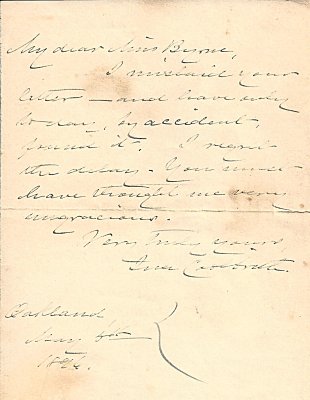 My dear Miss Byrne,
I mislaid your
letter — and have only
to day, by accident,
found it. I regret
the delay. You must
have thought me very
ungracious.
Very truly yours
Ina Coolbrith.
Oakland
May 6th